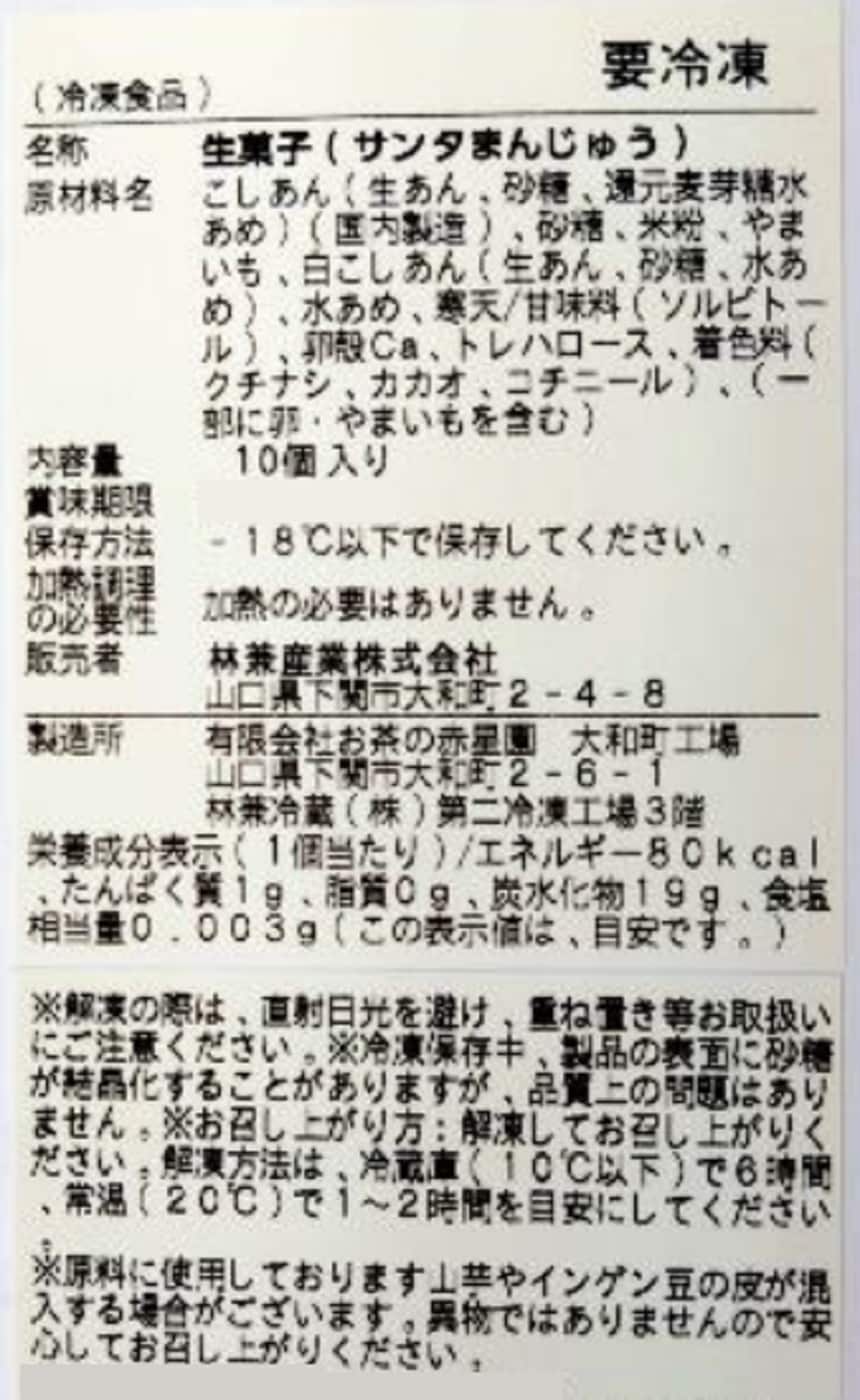 要冷凍
(冷凍食品)
名称 生菓子(サンタまんじゅう)
原材料名 こしあん(生あん、砂糖、還元麦芽糖水
あめ)(国内製造)、砂糖、米粉、やま
いも、白こしあん(生あん、砂糖、水あ
め)、水あめ、寒天/甘味料(ソルビトー
ル)、卵殻Ca、トレハロース、着色料(
クチナシ、カカオ、コチニール)、(一
部に卵・やまいもを含む)
内容量 10個入り
賞味期限
保存方法 -18℃以下で保存してください。
加熱調理
の必要性 加熱の必要はありません。
販売者 林兼産業株式会社
山口県下関市大和町2-4-8
製造所 有限会社お茶の赤星園 大和町工場
山口県下関市大和町2-6-1
林兼冷蔵(株)第二冷凍工場3階
栄養成分表示(1個当たり)/エネルギー80kcal
、たんぱく質1g、脂質0g、炭水化物19g、食塩
相当量0.003g(この表示値は、目安です。)
※解凍の際は、直射日光を避け、重ね置き等お取扱い
にご注意ください。※冷凍保存中、製品の表面に砂糖
が結晶化することがありますが、品質上の問題はあり
ません。※お召し上がり方:解凍してお召し上がりく
ださい。解凍方法は、冷蔵庫(10℃以下)で6時間
、常温(20℃)で1~2時間を目安にしてください
。
※原料に使用しております山芋やインゲン豆の皮が混
入する場合がございます。異物ではありませんので安
心してお召し上がりください。